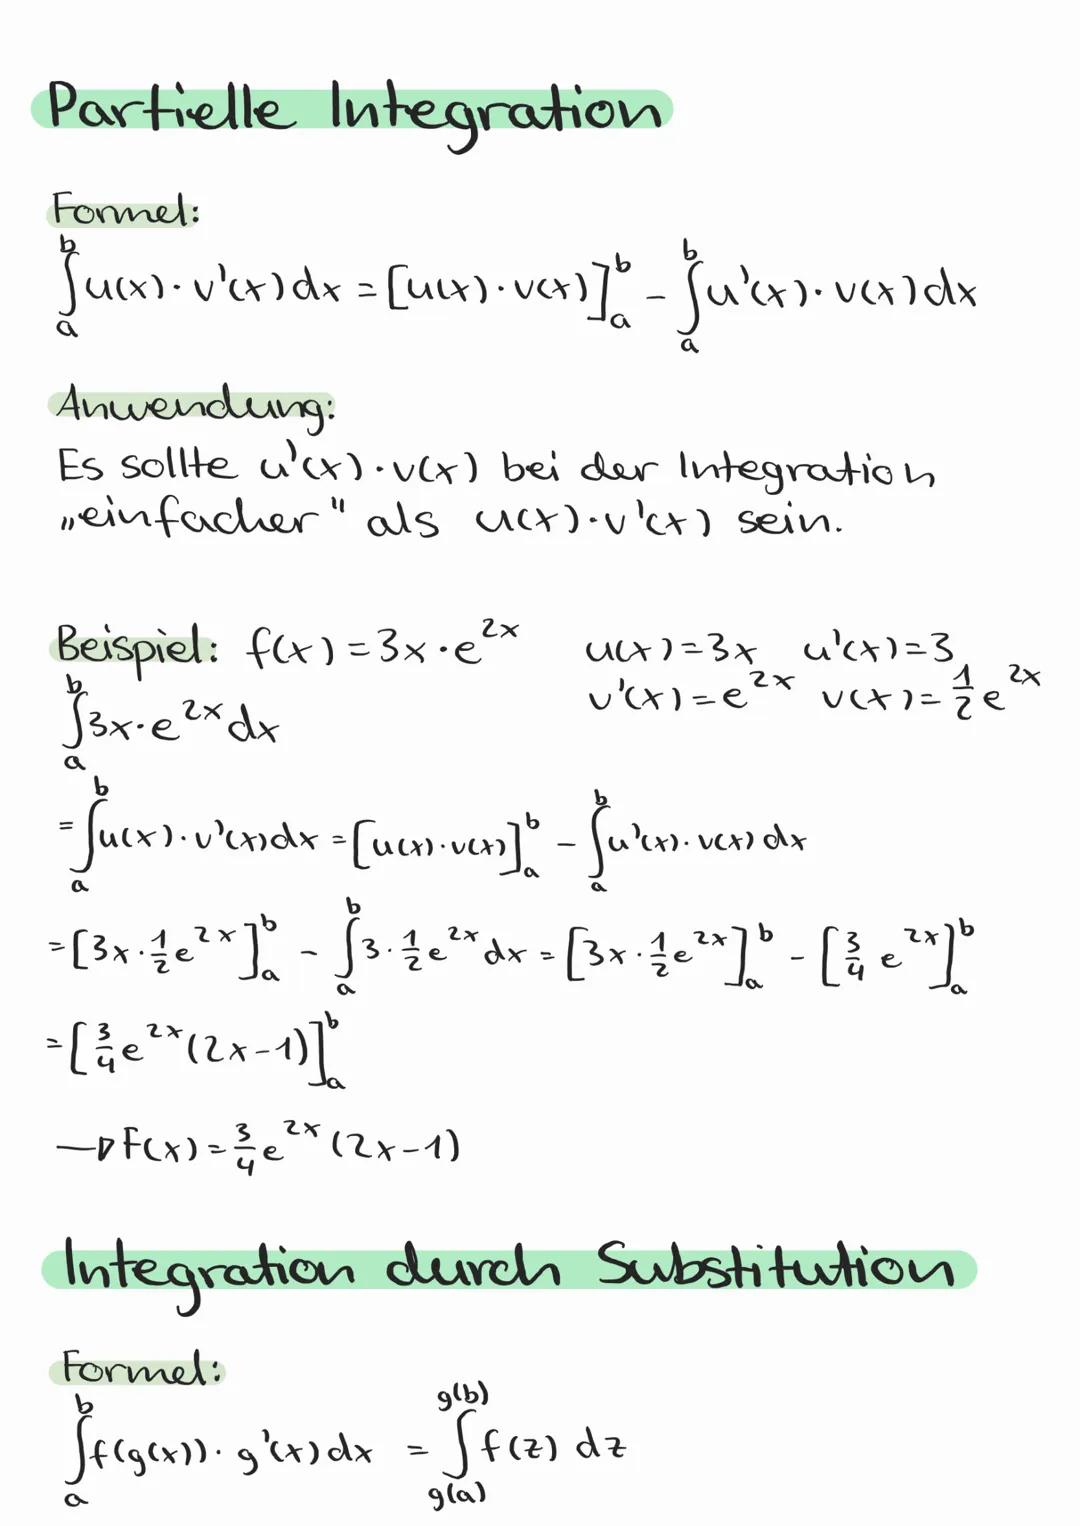 Partielle Integration
Formel:
∫ₐᵇ u(x)·v'(x)dx = [u(x)·v(x)]ₐᵇ - ∫ₐᵇ u'(x)·v(x)dx
Anwendung:
Es sollte u'(x)·v(x) bei der Integration
„einfacher" als u(x)·v'(x) sein.
Beispiel: f(x)=3x·e^(2x) u(x)=3x u'(x)=3
∫ₐᵇ 3x·e^(2x)dx v'(x)=e^(2x) v(x)=1/2 e^(2x)
= ∫ₐᵇ u(x)·v'(x)dx = [u(x)·v(x)]ₐᵇ - ∫ₐᵇ u'(x)·v(x)dx
= [3x·1/2 e^(2x)]ₐᵇ - ∫ₐᵇ 3·1/2 e^(2x)dx = [3x·1/2 e^(2x)]ₐᵇ - [3/4 e^(2x)]ₐᵇ
= [3/4 e^(2x)(2x-1)]ₐᵇ
→ F(x)=3/4 e^(2x)(2x-1)
Integration durch Substitution
Formel:
∫ₐᵇ f(g(x))·g'(x)dx = ∫_g(a)^g(b) f(z) dz